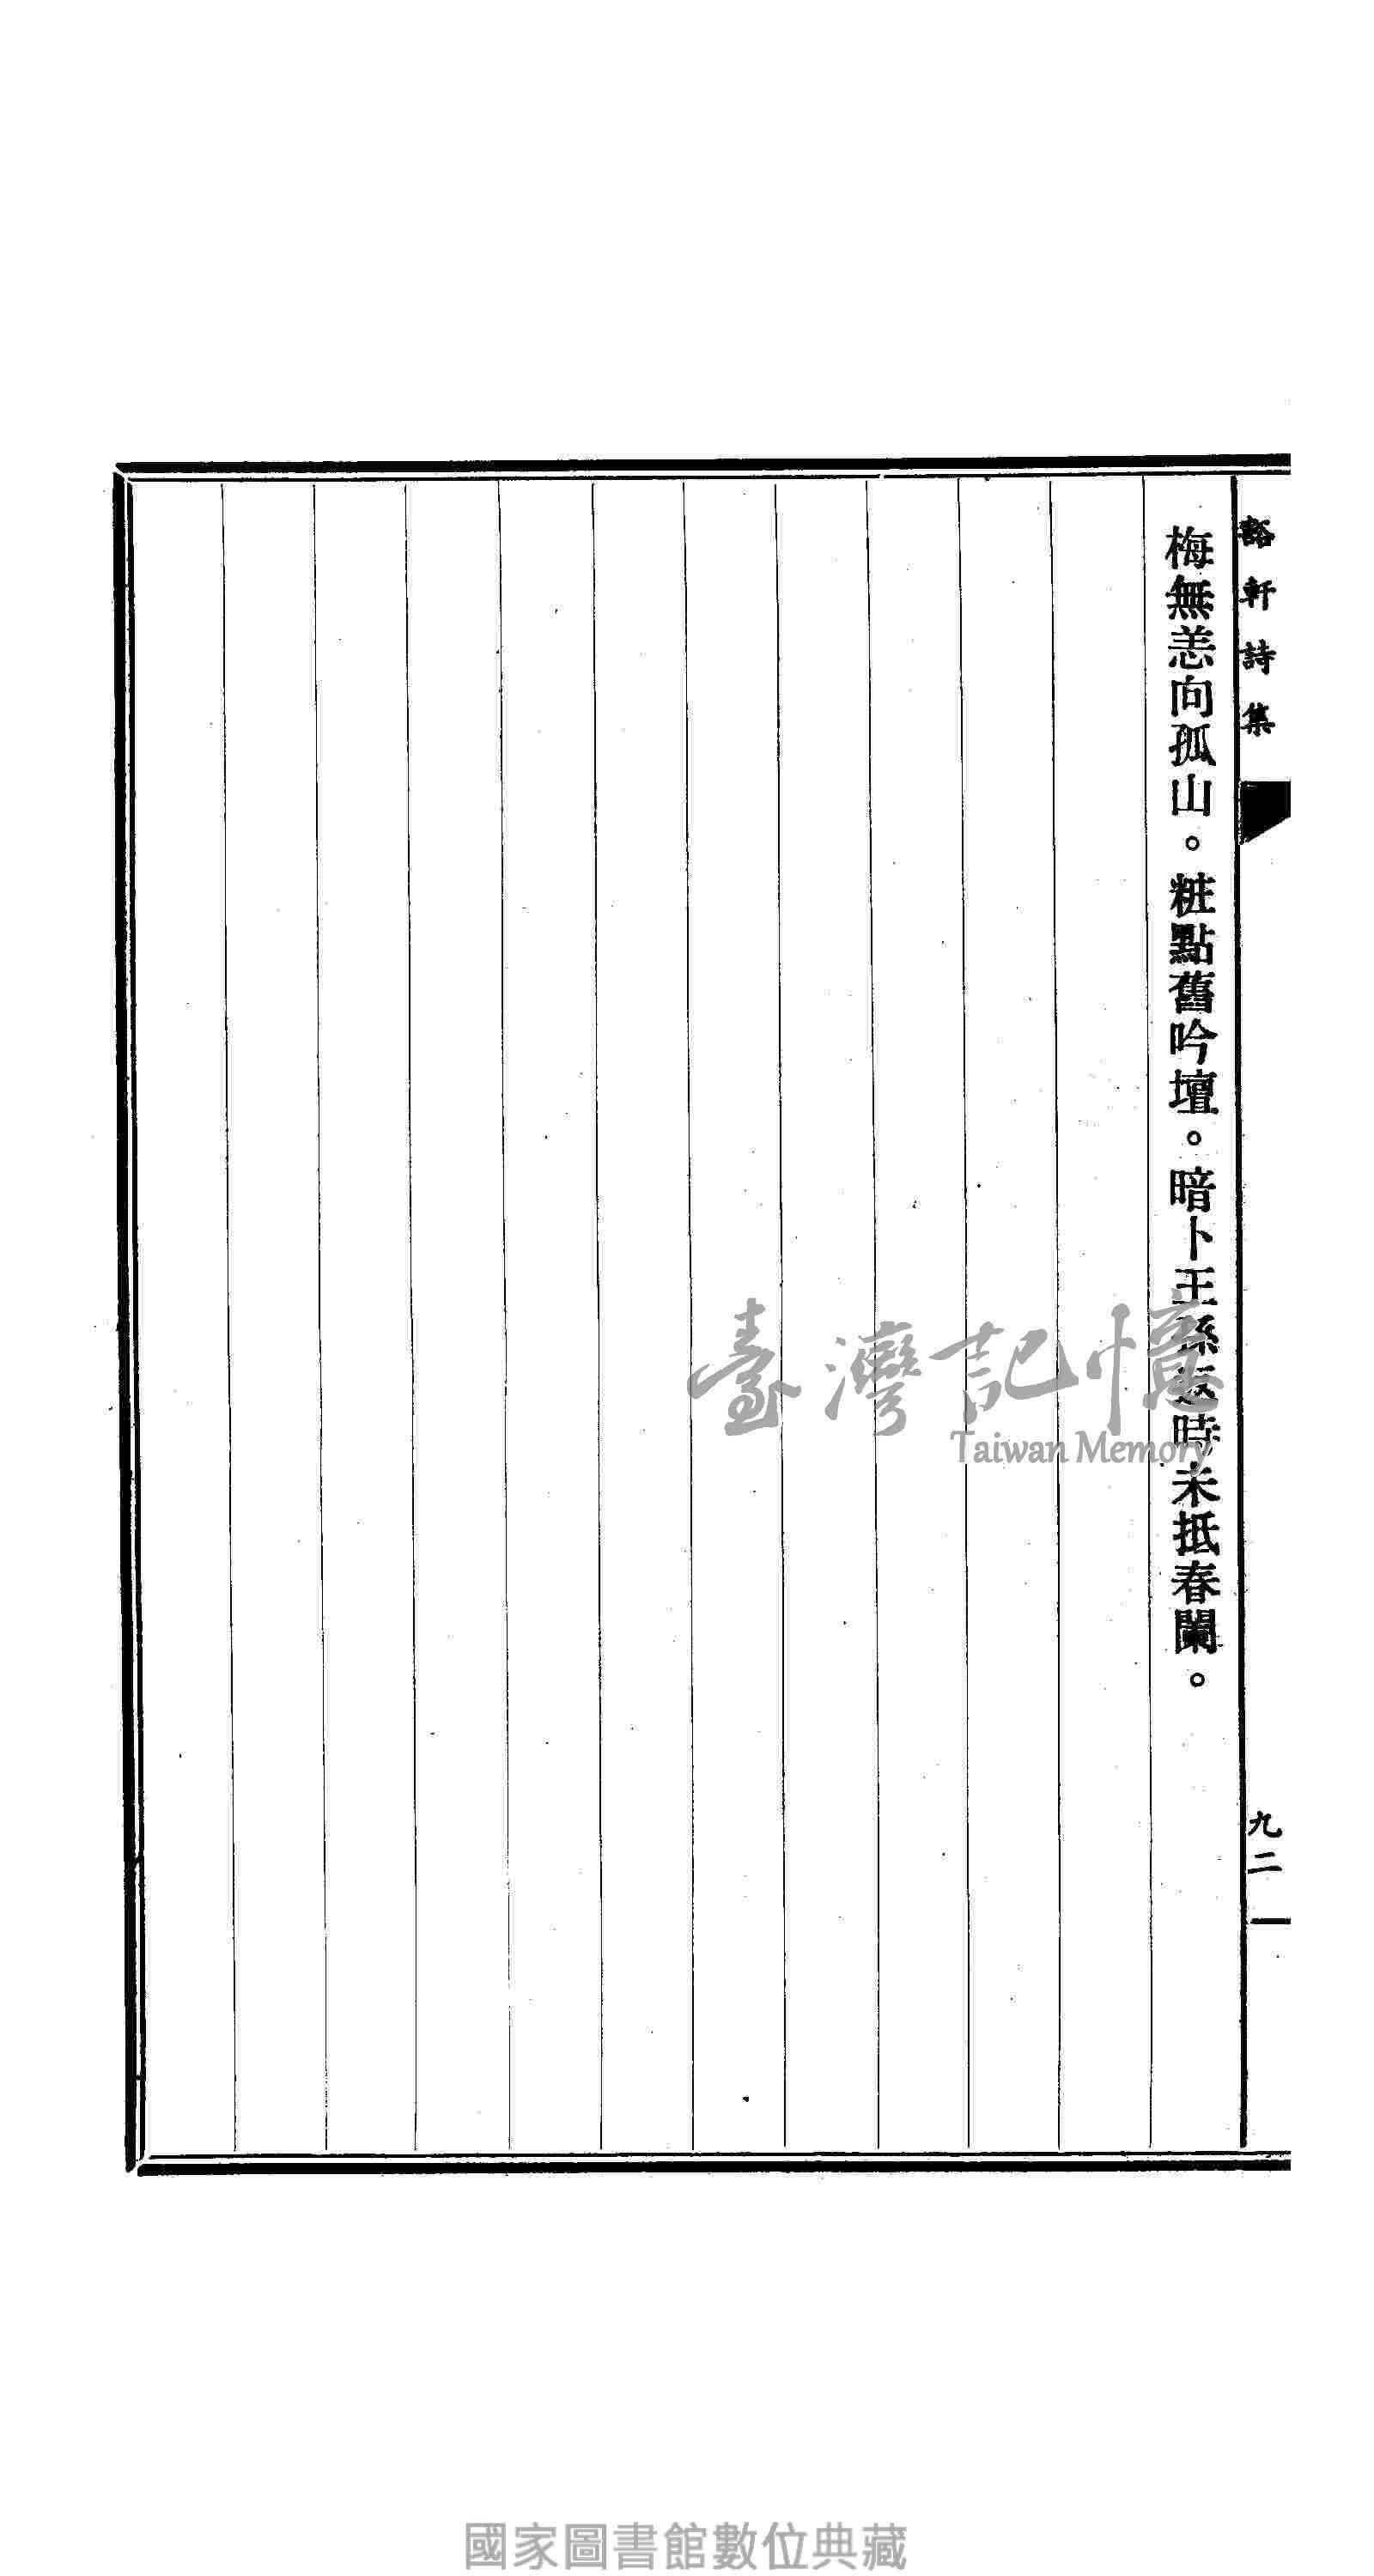 豁軒詩集
九二
梅無恙向孤山。粧點舊吟壇。暗卜王孫返時未抵春闌。
臺灣記憶
Taiwan Memory
國家圖書館數位典藏